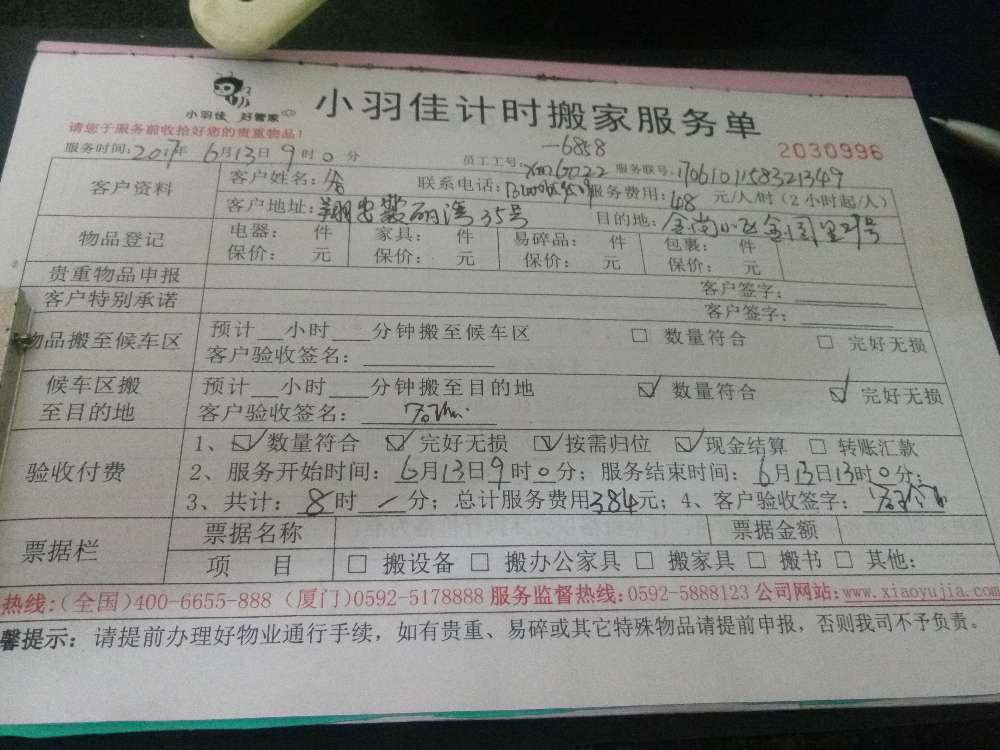 小羽佳 好管家
小羽佳计时搬家服务单
请您于服务前收拾好您的贵重物品!
-6858
2030996
服务时间:2017年 6月13日 9时0分 员工工号: 服务联号:1706101158321349
客户资料
客户姓名: 联系电话: 服务费用:48 元/人/时(2小时起/人)
客户地址:翔安 35号 目的地:
物品登记
电器: 件 家具: 件 易碎品: 件 包裹: 件
保价: 元 保价: 元 保价: 元 保价: 元
贵重物品申报 客户签字:
客户特别承诺 客户签字:
物品搬至候车区
预计 小时 分钟搬至候车区 □ 数量符合 □ 完好无损
客户验收签名:
候车区搬至目的地
预计 小时 分钟搬至目的地 ☑ 数量符合 ☑ 完好无损
客户验收签名:
验收付费
1、☑数量符合 ☑完好无损 ☑按需归位 ☑现金结算 □ 转账汇款
2、服务开始时间:6月13日9时0分;服务结束时间:6月13日13时0分;
3、共计:8时/分;总计服务费用384元;4、客户验收签字:
票据栏
票据名称 票据金额
项 目 □ 搬设备 □ 搬办公家具 □ 搬家具 □ 搬书 □ 其他:
热线:(全国)400-6655-888 (厦门)0592-5178888 服务监督热线:0592-5888123 公司网站:www.xiaoyujia.com
馨提示: 请提前办理好物业通行手续,如有贵重、易碎或其它特殊物品请提前申报,否则我司不予负责。